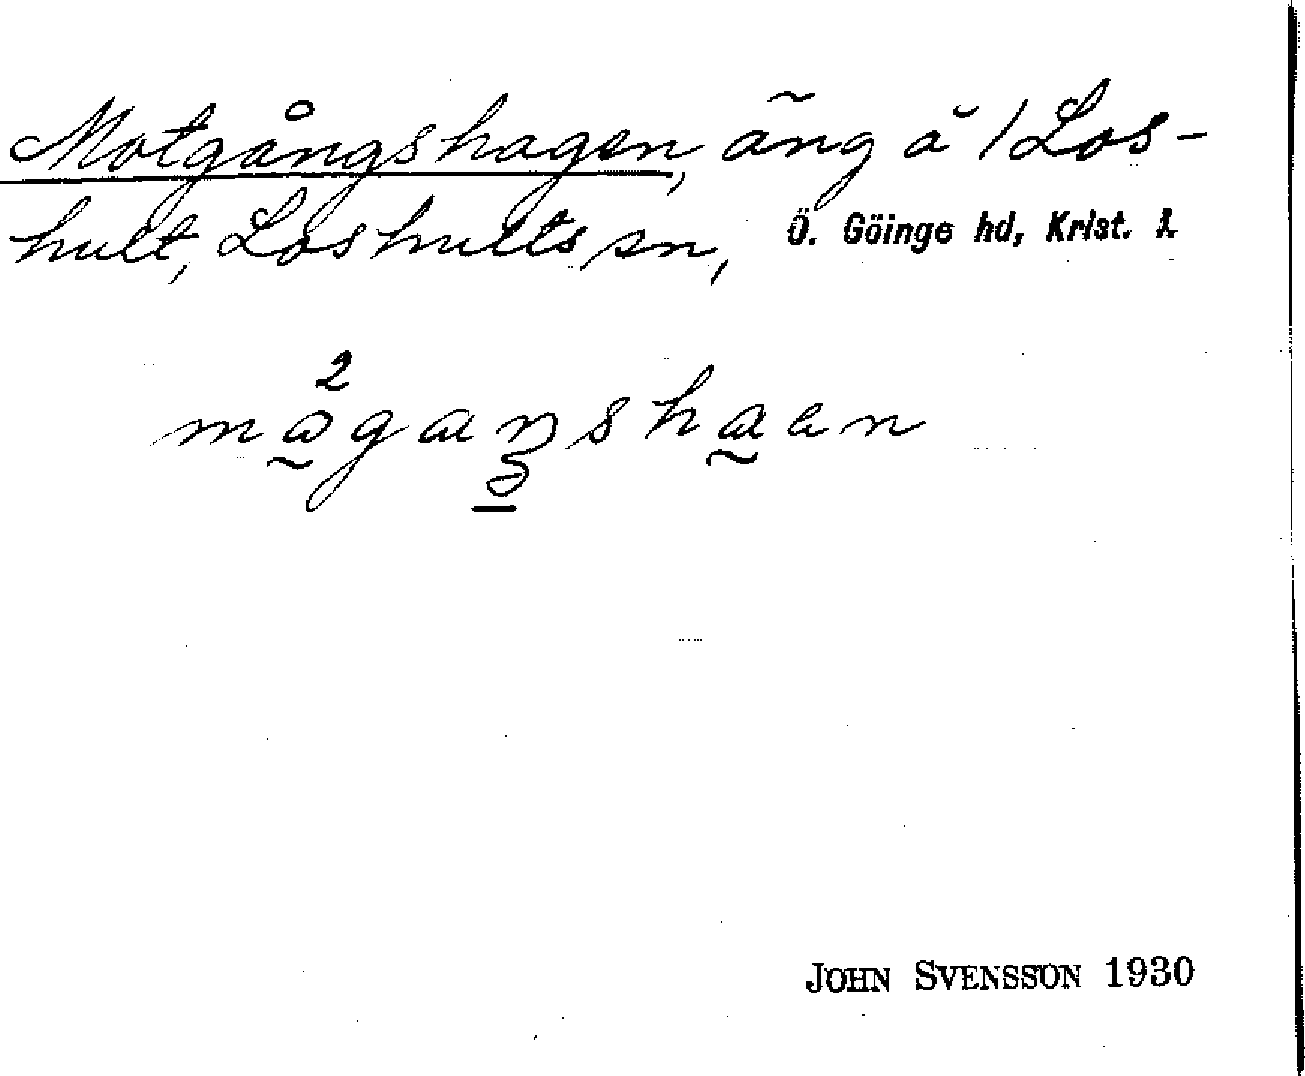 Motgångshagen, äng å 1 Los-
hult, Loshults sn, Ö. Göinge hd, Krist. l.
JOHN SVENSSON 1930